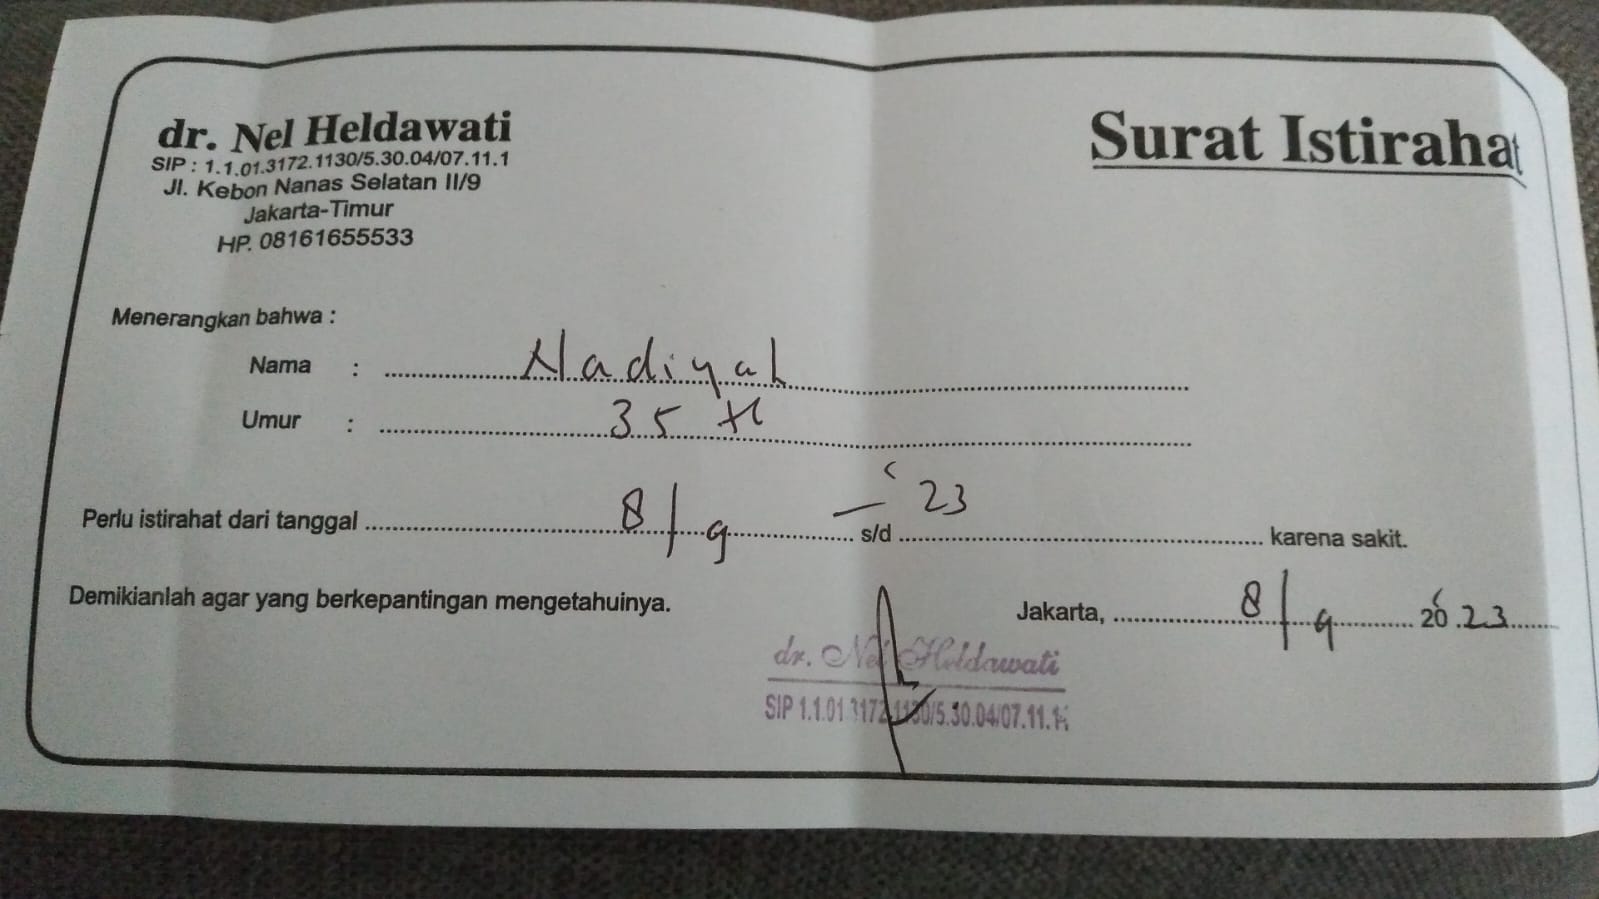 dr. Nel Heldawati
SIP : 1.1.01.3172.1130/5.30.04/07.11.1
Jl. Kebon Nanas Selatan II/9
Jakarta-Timur
HP. 08161655533
Surat Istirahat
Menerangkan bahwa :
Nama : Nadiyah
Umur : 35 th
Perlu istirahat dari tanggal 8/9 – '23 s/d karena sakit.
Demikianlah agar yang berkepantingan mengetahuinya.
Jakarta, 8/9 2023
dr. Nel Heldawati
SIP 1.1.01.3172.1130/5.30.04/07.11.1